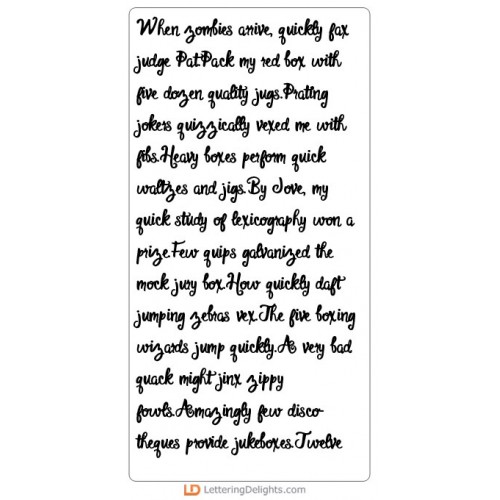 When zombies arrive, quickly fax
judge Pat.Pack my red box with
five dozen quality jugs.Prating
jokers quizzically vexed me with
fibs.Heavy boxes perform quick
waltzes and jigs.By Jove, my
quick study of lexicography won a
prize.Few quips galvanized the
mock jury box.How quickly daft
jumping zebras vex.The five boxing
wizards jump quickly.A very bad
quack might jinx zippy
fowls.Amazingly few disco-
theques provide jukeboxes.Twelve
LD LetteringDelights.com